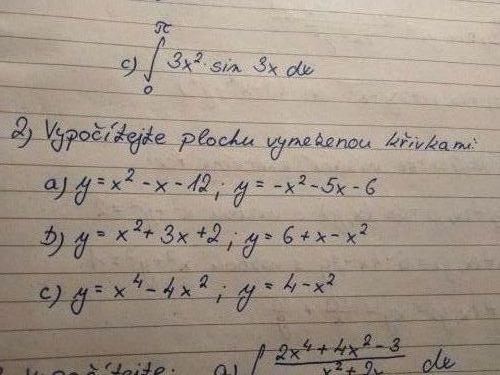 c) ∫₀^π 3x² · sin 3x dx
2) Vypočítejte plochu vymezenou křivkami:
a) y = x² - x - 12 ; y = -x² - 5x - 6
b) y = x² + 3x + 2 ; y = 6 + x - x²
c) y = x⁴ - 4x² ; y = 4 - x²
a) ∫ (2x⁴ + 4x² - 3)/(x² + 2x) dx